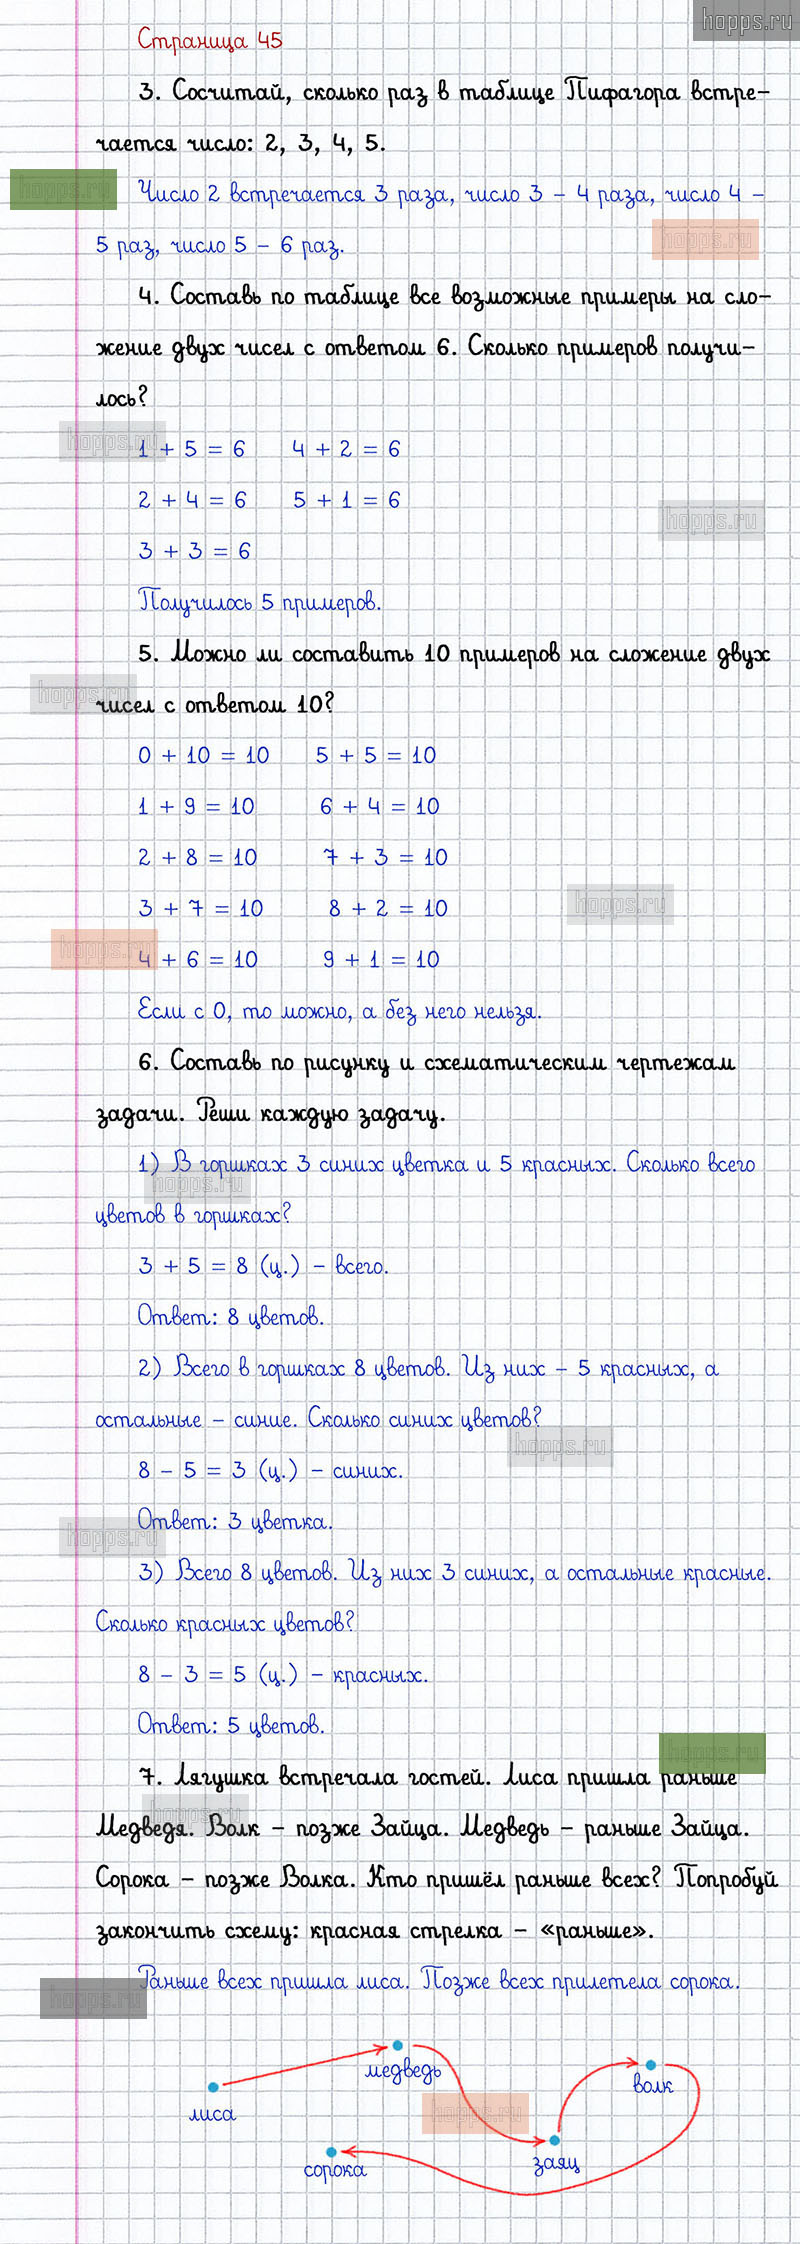 hopps.ru
Страница 45
3. Сосчитай, сколько раз в таблице Пифагора встре-
чается число: 2, 3, 4, 5.
hopps.ru
Число 2 встречается 3 раза, число 3 – 4 раза, число 4 –
hopps.ru
5 раз, число 5 – 6 раз.
4. Составь по таблице все возможные примеры на сло-
жение двух чисел с ответом 6. Сколько примеров получи-
лось?
hopps.ru
1 + 5 = 6 4 + 2 = 6
2 + 4 = 6 5 + 1 = 6
hopps.ru
3 + 3 = 6
Получилось 5 примеров.
5. Можно ли составить 10 примеров на сложение двух
hopps.ru
чисел с ответом 10?
0 + 10 = 10 5 + 5 = 10
1 + 9 = 10 6 + 4 = 10
2 + 8 = 10 7 + 3 = 10
3 + 7 = 10 8 + 2 = 10
hopps.ru
hopps.ru
4 + 6 = 10 9 + 1 = 10
Если с 0, то можно, а без него нельзя.
6. Составь по рисунку и схематическим чертежам
задачи. Реши каждую задачу.
1) В горшках 3 синих цветка и 5 красных. Сколько всего
hopps.ru
цветов в горшках?
3 + 5 = 8 (ц.) – всего.
Ответ: 8 цветов.
2) Всего в горшках 8 цветов. Из них – 5 красных, а
остальные – синие. Сколько синих цветов?
hopps.ru
8 – 5 = 3 (ц.) – синих.
Ответ: 3 цветка.
hopps.ru
3) Всего 8 цветов. Из них 3 синих, а остальные красные.
Сколько красных цветов?
8 – 3 = 5 (ц.) – красных.
Ответ: 5 цветов.
hopps.ru
7. Лягушка встречала гостей. Лиса пришла раньше
hopps.ru
Медведя. Волк – позже Зайца. Медведь – раньше Зайца.
Сорока – позже Волка. Кто пришёл раньше всех? Попробуй
закончить схему: красная стрелка – «раньше».
Раньше всех пришла лиса. Позже всех прилетела сорока.
hopps.ru
медведь
волк
лиса
hopps.ru
заяц
сорока